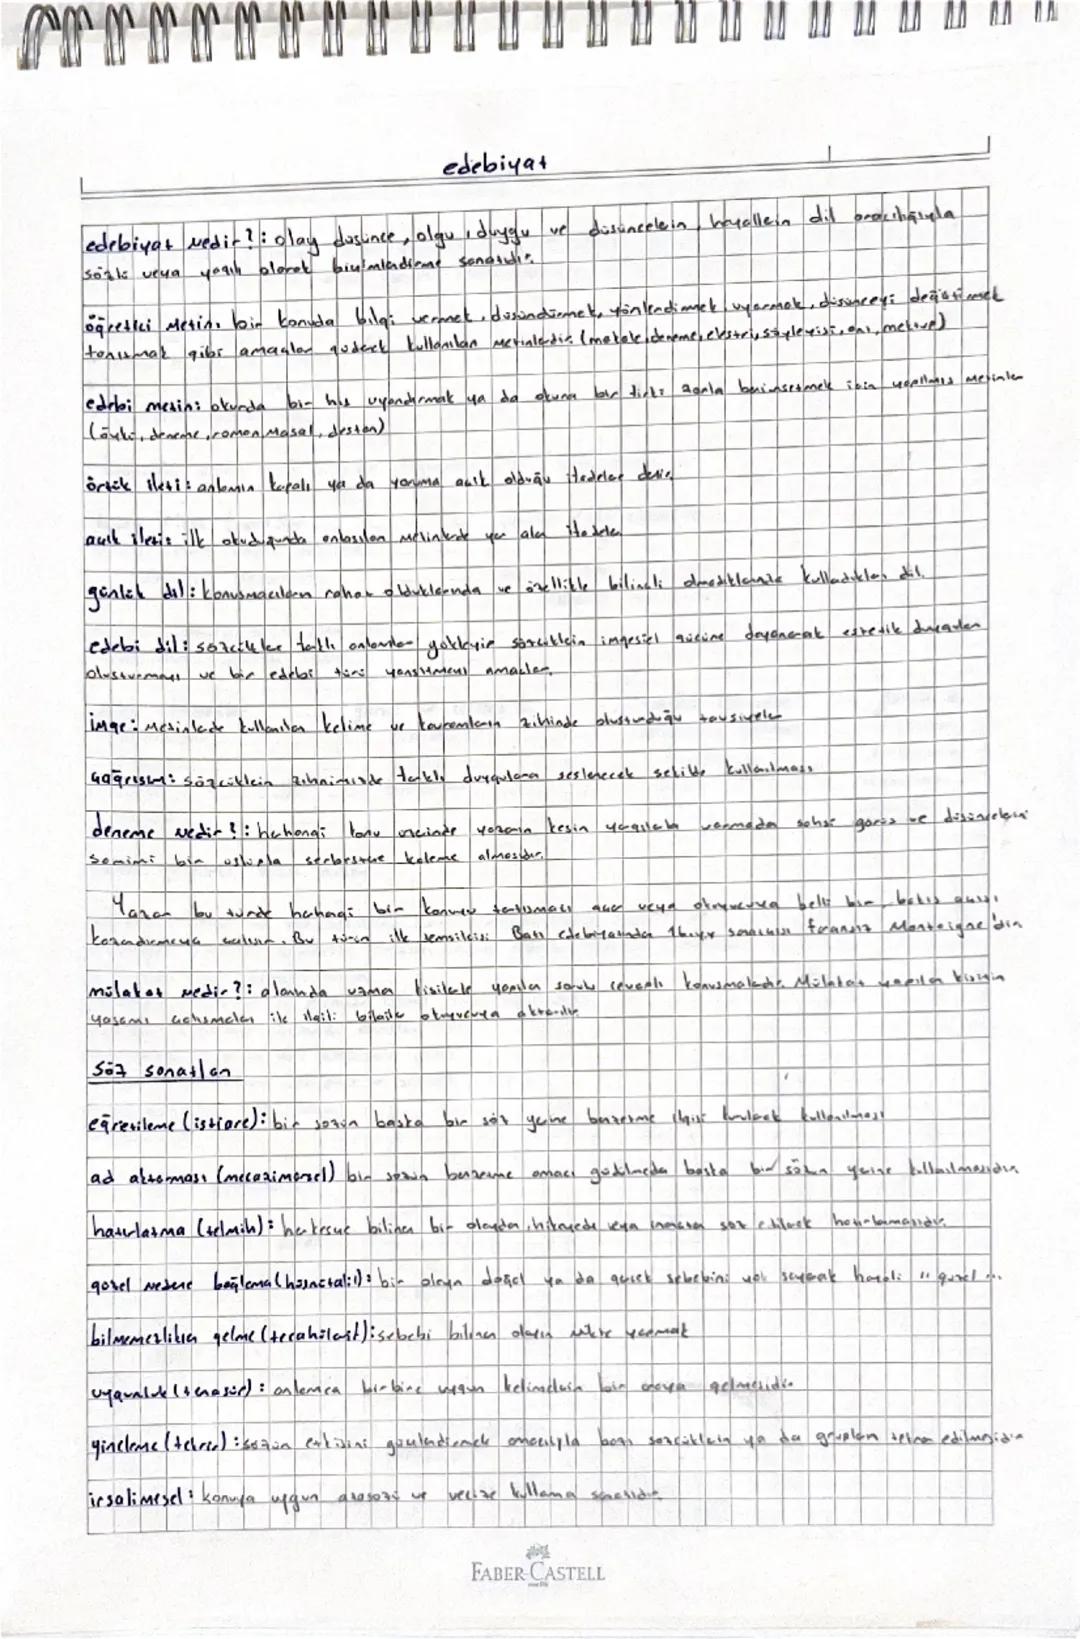 edebiyat
edebiyat nedir?: olay düşünce, olgu, duygu ve düşüncelerin, hayallerin dil aracılığıyla
sözlü veya yazılı olarak biçimlendirme sanatıdır.
öğretici metin: bir konuda bilgi vermek, düşündürmek, yönlendirmek, uyarmak, düşünceyi değiştirmek
tanıtmak gibi amaçlar güderek kullanılan metinlerdir. (makale, deneme, eleştri, söyleyişi, anı, mektup)
edebi metin: okurda bir his uyandırmak ya da okuna bir fikri benimsetmek için yapılmış metinler
(öykü, deneme, roman, masal, destan)
örtük ileti: anlamın kapalı ya da yoruma açık olduğu ifadeler denir.
açık ileti: ilk okuduğunda anlaşılan metinlerde yer alan ifadeler
günlük dil: konuşmacıların rahat olduklarında ve özellikle bilinçli olmadıklarında kulladıkları dil.
edebi dil: sözcükler farklı anlamlar yükleyip sözcüklerin imgesel gücüne dayanarak estetik duygular
oluşturmayı ve bir edebi türü yansıtmayı amaçlar.
imge: Metinlerde kullanılan kelime ve kavramların zihinde oluşturduğu tavsiyeler
çağrışım: sözcüklerin zihnimizde farklı duygulara seslenecek şekilde kullanılması
deneme nedir?: herhangi konu yazarın kesin yargılara varmadan şahsi görüş ve düşüncelerini
samimi bir uslupla serbestçe kaleme almasıdır.
Yazar bu türde herhangi bir konuyu tartışmacı veya okuyucuya belli bir bakış açısı
kazandırmaya çalışır. Bu türün ilk temsilcisi Batı edebiyatında 16.yy fransız Montaigne'din
mülakat nedir?: alanında uzman kişilerle yapılan sorulu cevaplı konuşmalardır. Mülakat yapılan kişinin
yaşamı çalışmaları ile ilgili bilgiler okuyucuya aktarılır.
Söz sanatları
eğretileme (istiare): bir sözün başka bir söz yerine benzetme ilgisi kurularak kullanılması
ad aktarması (mecazimürsel) bir sözün benzetme amacı güdülmeden başka bir sözün yerine kullanılmasıdır
hatırlatma (telmih): herkesçe bilinen bir olaydan, hikayeden veya inançtan söz edilerek hatırlamasıdır.
güzel nedene bağlama (hüsnütalil): bir olayın doğal ya da gerçek sebebini yok sayarak hayali "güzel ...
bilmemezlikten gelme (tecahüliarif): sebebi bilinen olayın nükte yapmak
uygunluk (tenasüp): anlamca birbirine uygun kelimelerin bir araya gelmesidir.
yineleme (tekrir): sözün etkisini güçlendirmek amacıyla bazı sözcüklerin ya da grupların tekrar edilmesidir
irsalimesel: konuya uygun atasözü ve vecize kullanma sanatıdır.
FABER-CASTELL